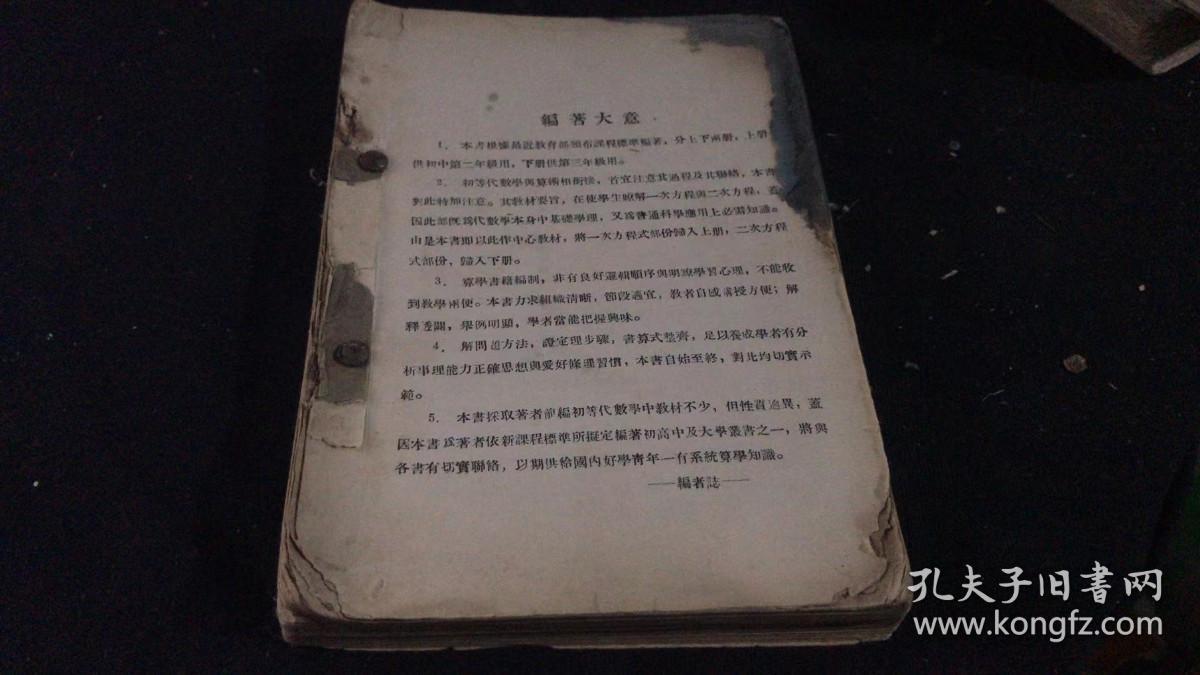 編著大意
1. 本書根據最近教育部頒布課程標準編著，分上下兩册，上册
供初中第二年級用，下册供第三年級用。
2. 初等代數學與算術相銜接，首宜注意其過程及其聯絡，本書
對此特加注意。其教材要旨，在使學生瞭解一次方程與二次方程，蓋
因此部旣爲代數學本身中基礎學理，又爲普通科學應用上必需知識。
由是本書即以此作中心教材，將一次方程式部份歸入上册，二次方程
式部份，歸入下册。
3. 算學書籍編制，非有良好邏輯順序與明瞭學習心理，不能收
到敎學兩便。本書力求組織清晰，節段適宜，敎者自感講授方便；解
釋透闢，舉例明顯，學者當能把握興味。
4. 解問題方法，證定理步驟，書算式整齊，足以養成學者有分
析事理能力正確思想與愛好條理習慣，本書自始至終，對此均切實示
範。
5. 本書採取著者前編初等代數學中敎材不少，但性質逈異，蓋
因本書爲著者依新課程標準所擬定編著初高中及大學叢書之一，將與
各書有切實聯絡，以期供給國內好學靑年一有系統算學知識。
——編者誌——
孔夫子旧书网
www.kongfz.com